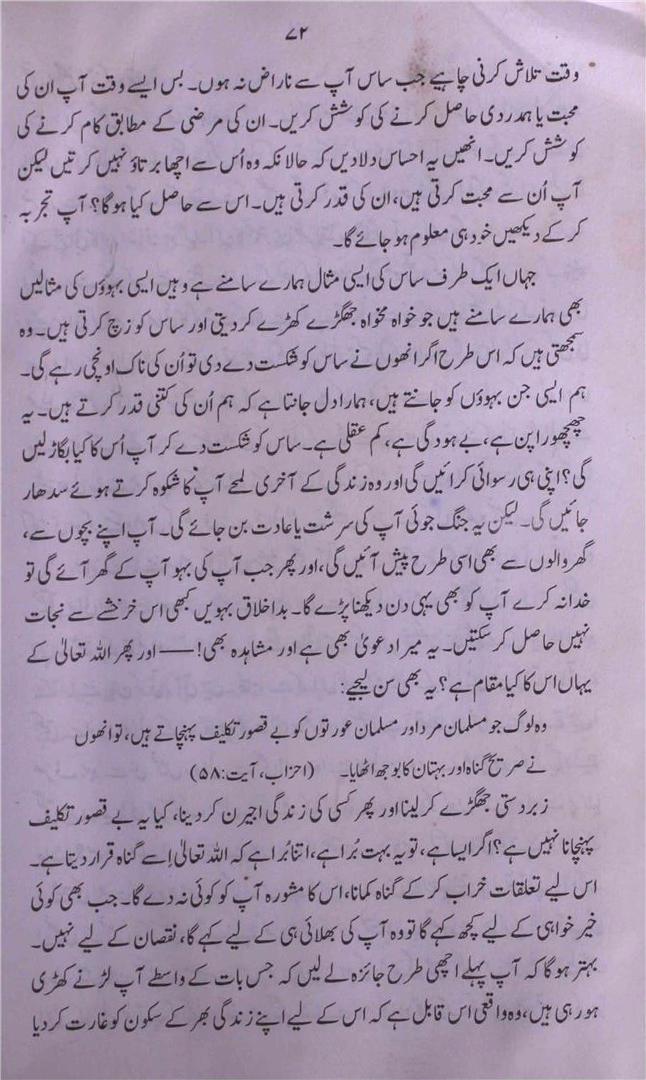 ۷۲
وقت تلاش کرنی چاہیے جب ساس آپ سے ناراض نہ ہوں۔ بس ایسے وقت آپ ان کی
محبت یا ہمدردی حاصل کرنے کی کوشش کریں۔ ان کی مرضی کے مطابق کام کرنے کی
کوشش کریں۔ انھیں یہ احساس دلا دیں کہ حالانکہ وہ اُس سے اچھا برتاؤ نہیں کرتیں لیکن
آپ اُن سے محبت کرتی ہیں، ان کی قدر کرتی ہیں۔ اس سے حاصل کیا ہوگا؟ آپ تجربہ
کر کے دیکھیں خود ہی معلوم ہو جائے گا۔
جہاں ایک طرف ساس کی ایسی مثال ہمارے سامنے ہے وہیں ایسی بہوؤں کی مثالیں
بھی ہمارے سامنے ہیں جو خواہ مخواہ جھگڑے کھڑے کر دیتی اور ساس کو زچ کرتی ہیں۔ وہ
سمجھتی ہیں کہ اس طرح اگر انھوں نے ساس کو شکست دے دی تو اُن کی ناک اونچی رہے گی۔
ہم ایسی جن بہوؤں کو جانتے ہیں، ہمارا دل جانتا ہے کہ ہم اُن کی کتنی قدر کرتے ہیں۔ یہ
چھچھورا پن ہے، بے ہودگی ہے، کم عقلی ہے۔ ساس کو شکست دے کر آپ اُس کا کیا بگاڑ لیں
گی؟ اپنی ہی رسوائی کرائیں گی اور وہ زندگی کے آخری لمحے آپ کا شکوہ کرتے ہوئے سدھار
جائیں گی۔ لیکن یہ جنگ جوئی آپ کی سرشت یا عادت بن جائے گی۔ آپ اپنے بچوں سے،
گھر والوں سے بھی اسی طرح پیش آئیں گی، اور پھر جب آپ کی بہو آپ کے گھر آئے گی تو
خدا نہ کرے آپ کو بھی یہی دن دیکھنا پڑے گا۔ بداخلاق بہویں کبھی اس خرخشے سے نجات
نہیں حاصل کر سکتیں۔ یہ میرا دعویٰ بھی ہے اور مشاہدہ بھی! —— اور پھر اللہ تعالیٰ کے
یہاں اس کا کیا مقام ہے؟ یہ بھی سن لیجیے:
وہ لوگ جو مسلمان مرد اور مسلمان عورتوں کو بے قصور تکلیف پہنچاتے ہیں، تو انھوں
نے صریح گناہ اور بہتان کا بوجھ اٹھایا۔ (احزاب، آیت: ۵۸)
زبردستی جھگڑے کر لینا اور پھر کسی کی زندگی اجیرن کر دینا، کیا یہ بے قصور تکلیف
پہنچانا نہیں ہے؟ اگر ایسا ہے، تو یہ بہت بُرا ہے، اتنا بُرا ہے کہ اللہ تعالیٰ اِسے گناہ قرار دیتا ہے۔
اس لیے تعلقات خراب کر کے گناہ کمانا، اس کا مشورہ آپ کو کوئی نہ دے گا۔ جب بھی کوئی
خیر خواہی کے لیے کچھ کہے گا تو وہ آپ کی بھلائی ہی کے لیے کہے گا، نقصان کے لیے نہیں۔
بہتر ہوگا کہ آپ پہلے اچھی طرح جائزہ لے لیں کہ جس بات کے واسطے آپ لڑنے کھڑی
ہو رہی ہیں، وہ واقعی اس قابل ہے کہ اس کے لیے اپنے زندگی بھر کے سکون کو غارت کر دیا